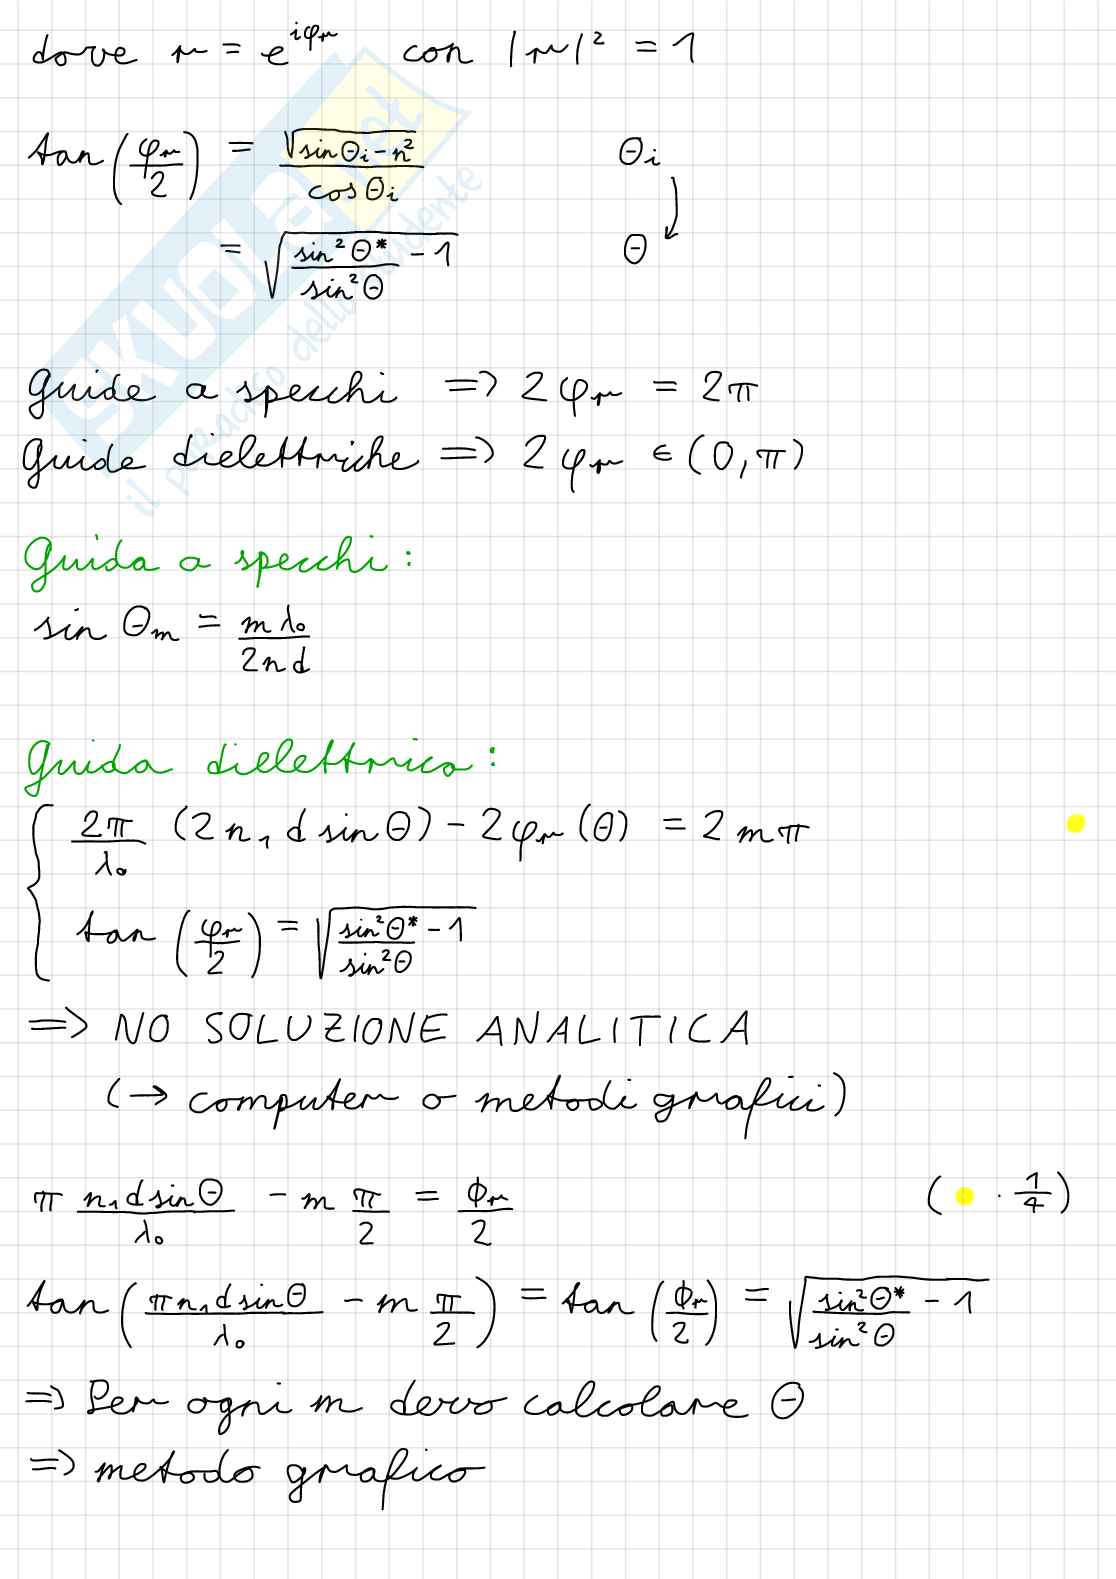 dove r = e^{iφ_r} con |r|² = 1
tan(φ_r/2) = √(sinθ_i - n²)/cosθ_i    θ_i
= √(sin²θ*/sin²θ - 1)    θ
Guide a specchi => 2φ_r = 2π
Guide dielettriche => 2φ_r ∈ (0, π)
Guida a specchi:
sin θ_m = mλ₀/2nd
Guida dielettrica:
{ 2π/λ₀ (2n₁ d sinθ) - 2φ_r(θ) = 2mπ
tan(φ_r/2) = √(sin²θ*/sin²θ - 1)
=> NO SOLUZIONE ANALITICA
(→ computer o metodi grafici)
π n₁d sinθ/λ₀ - m π/2 = ϕ_r/2    ( · 1/4)
tan(πn₁d sinθ/λ₀ - m π/2) = tan(ϕ_r/2) = √(sin²θ*/sin²θ - 1)
=> Per ogni m devo calcolare θ
=> metodo grafico
SKUOLA.net
il paradiso dello studente